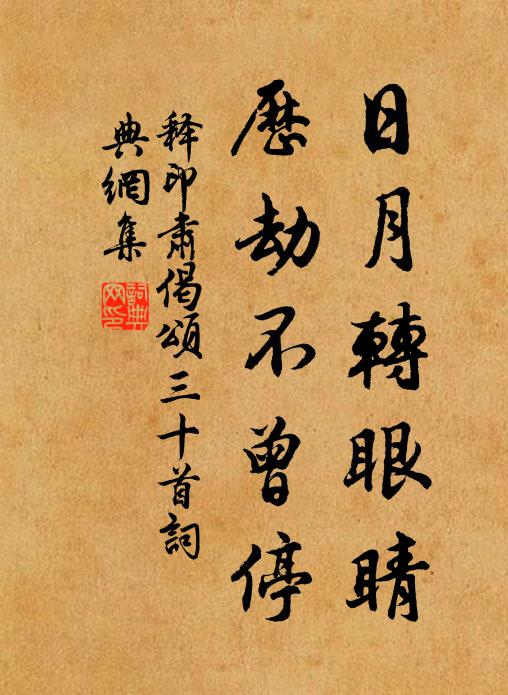 日月轉眼睛
歷劫不曾停
释印肅偈頌三十首詞
典網集
詞典网印